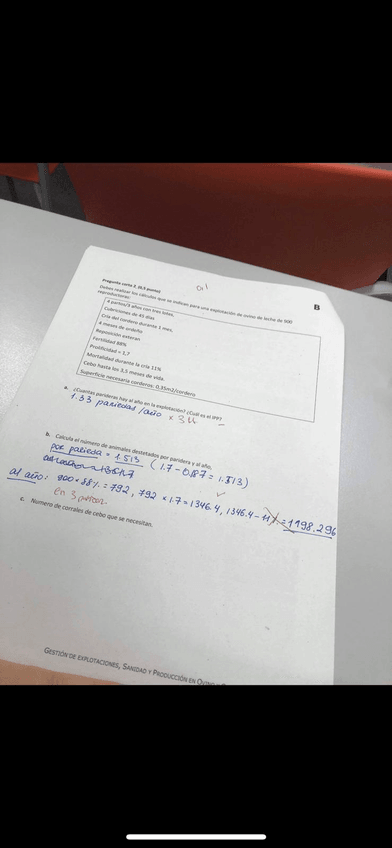 0,1
B
Pregunta corta 2. (0,5 punto)
Debes realizar los cálculos que se indican para una explotación de ovino de leche de 900
reproductoras:
4 partos/3 años con tres lotes,
Cubriciones de 45 días
Cría del cordero durante 1 mes,
4 meses de ordeño
Reposición externa
Fertilidad 88%
Prolificidad = 1,7
Mortalidad durante la cría 11%
Cebo hasta los 3,5 meses de vida.
Superficie necesaria corderos: 0,35m2/cordero
a. ¿Cuántas parideras hay al año en la explotación? ¿Cuál es el IPP?
1.33 pariedas/año x 3
b. Calcula el número de animales destetados por paridera y al año,
por parieda = 1.513 (1.7 - 0.187 = 1.513)
al año: 900 x 88% = 792, 792 x 1.7 = 1346.4, 1346.4 - 11% = 1198.296
en 3 partos
c. Número de corrales de cebo que se necesitan.
GESTIÓN DE EXPLOTACIONES, SANIDAD Y PRODUCCIÓN EN OVINO